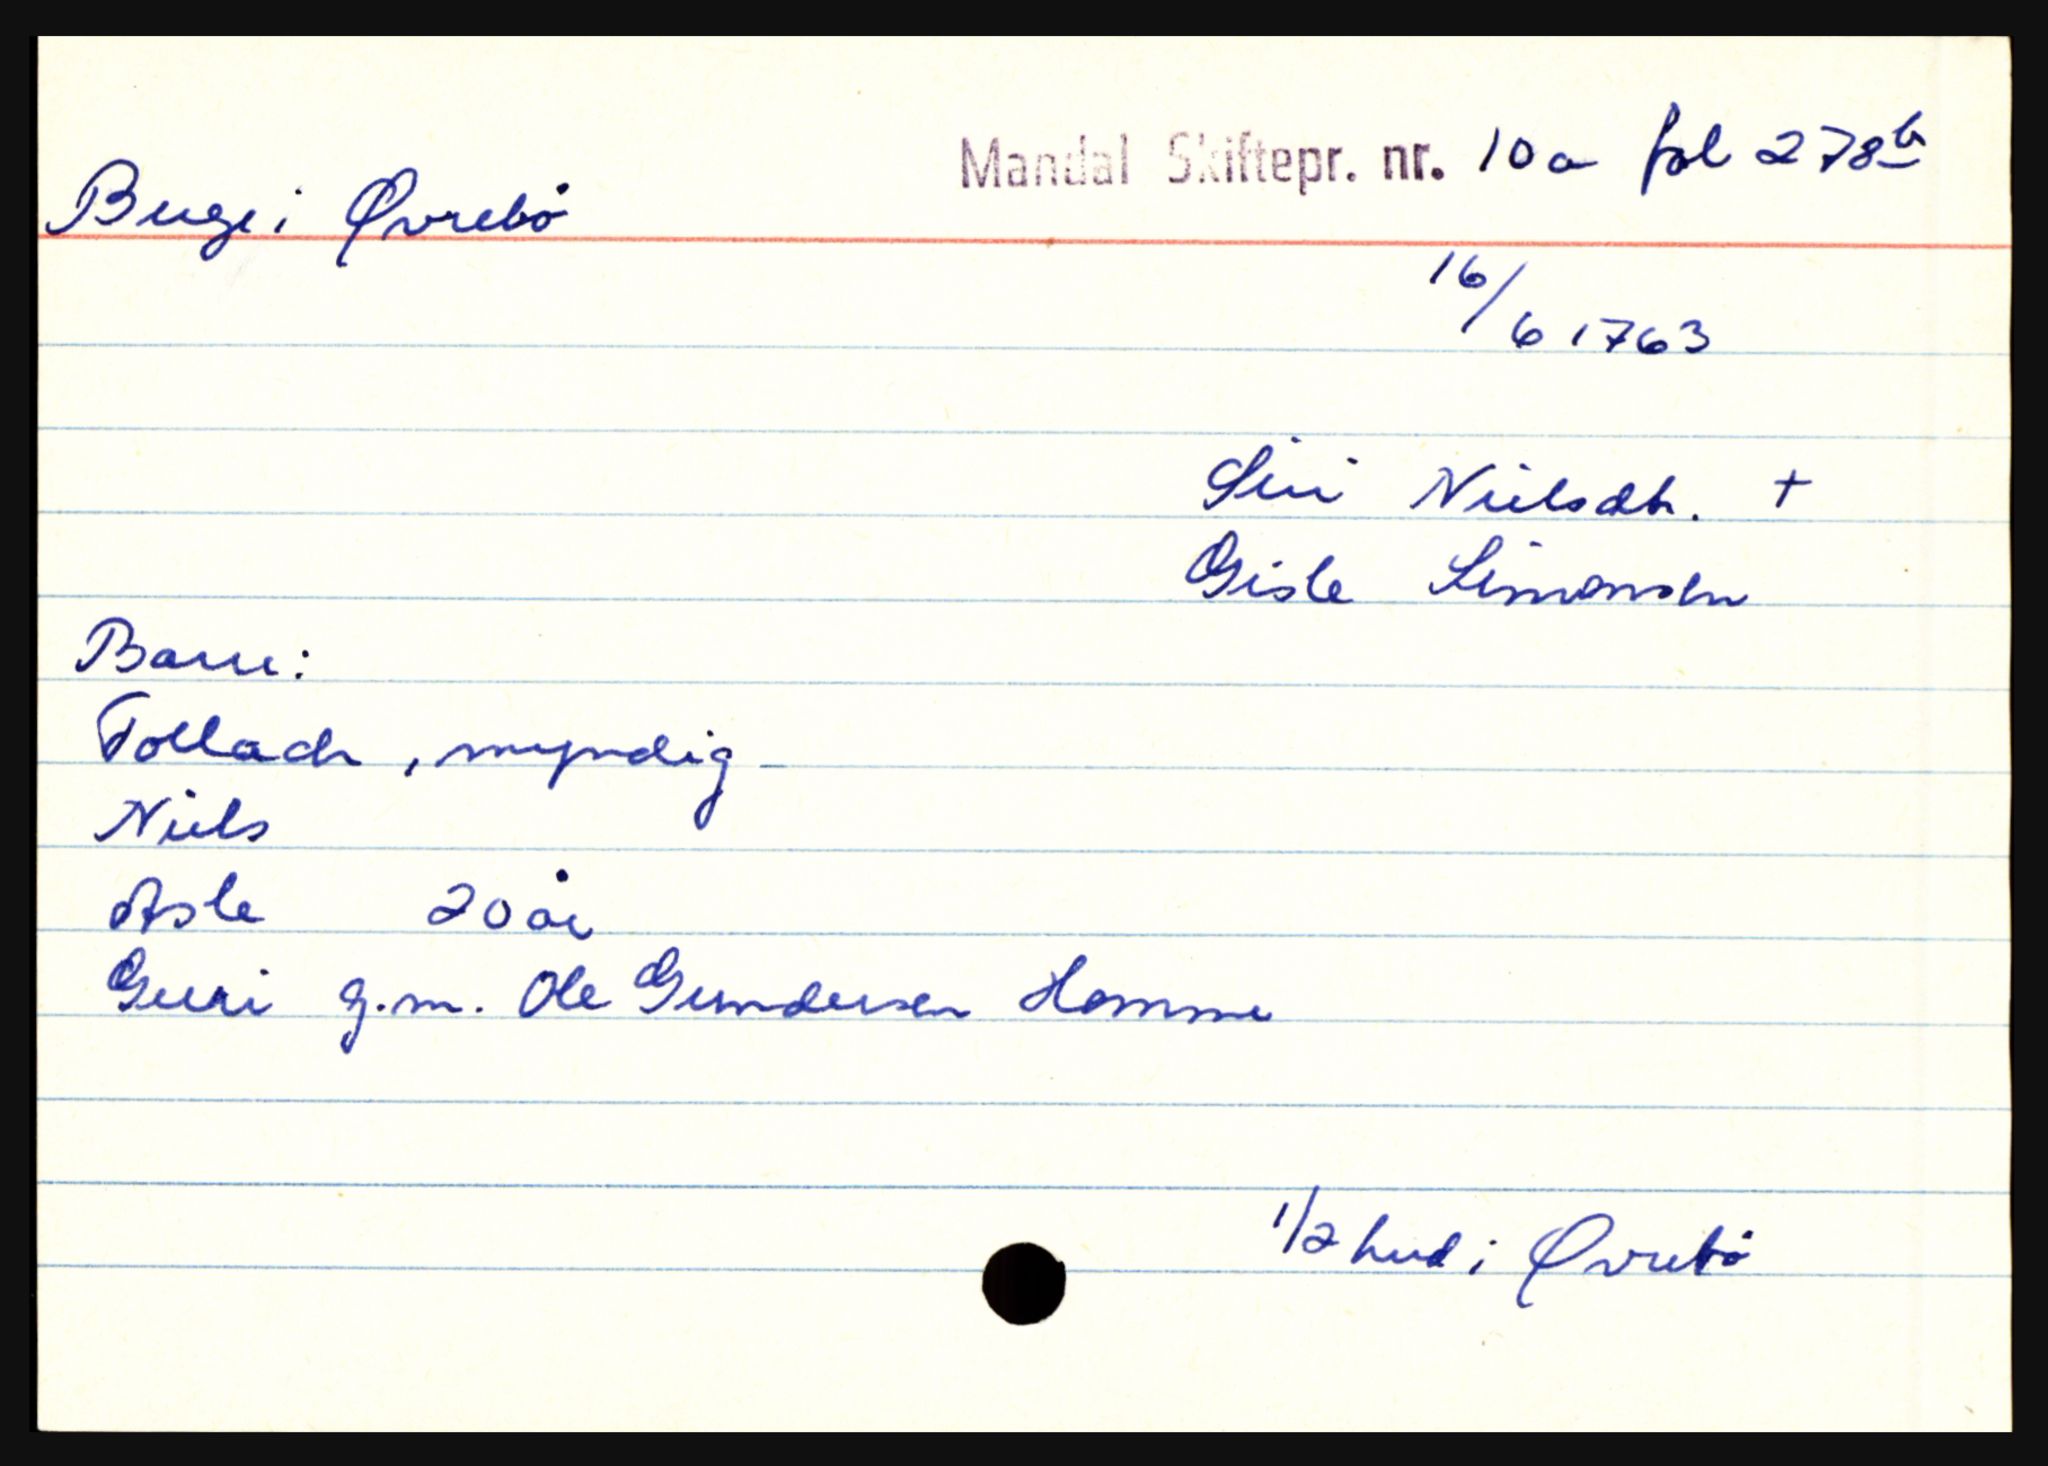 Mandal Skiftepr. nr. 10a fol 278b
Buge i Øvrebö
16/6 1763
Siri Nielsdtr. +
Gisle Simonsen
Barn:
Tollach, myndig
Niels
Asle 20 år
Guri g.m. Ole Gundersen Homme
1/2 hud i Øvrebö